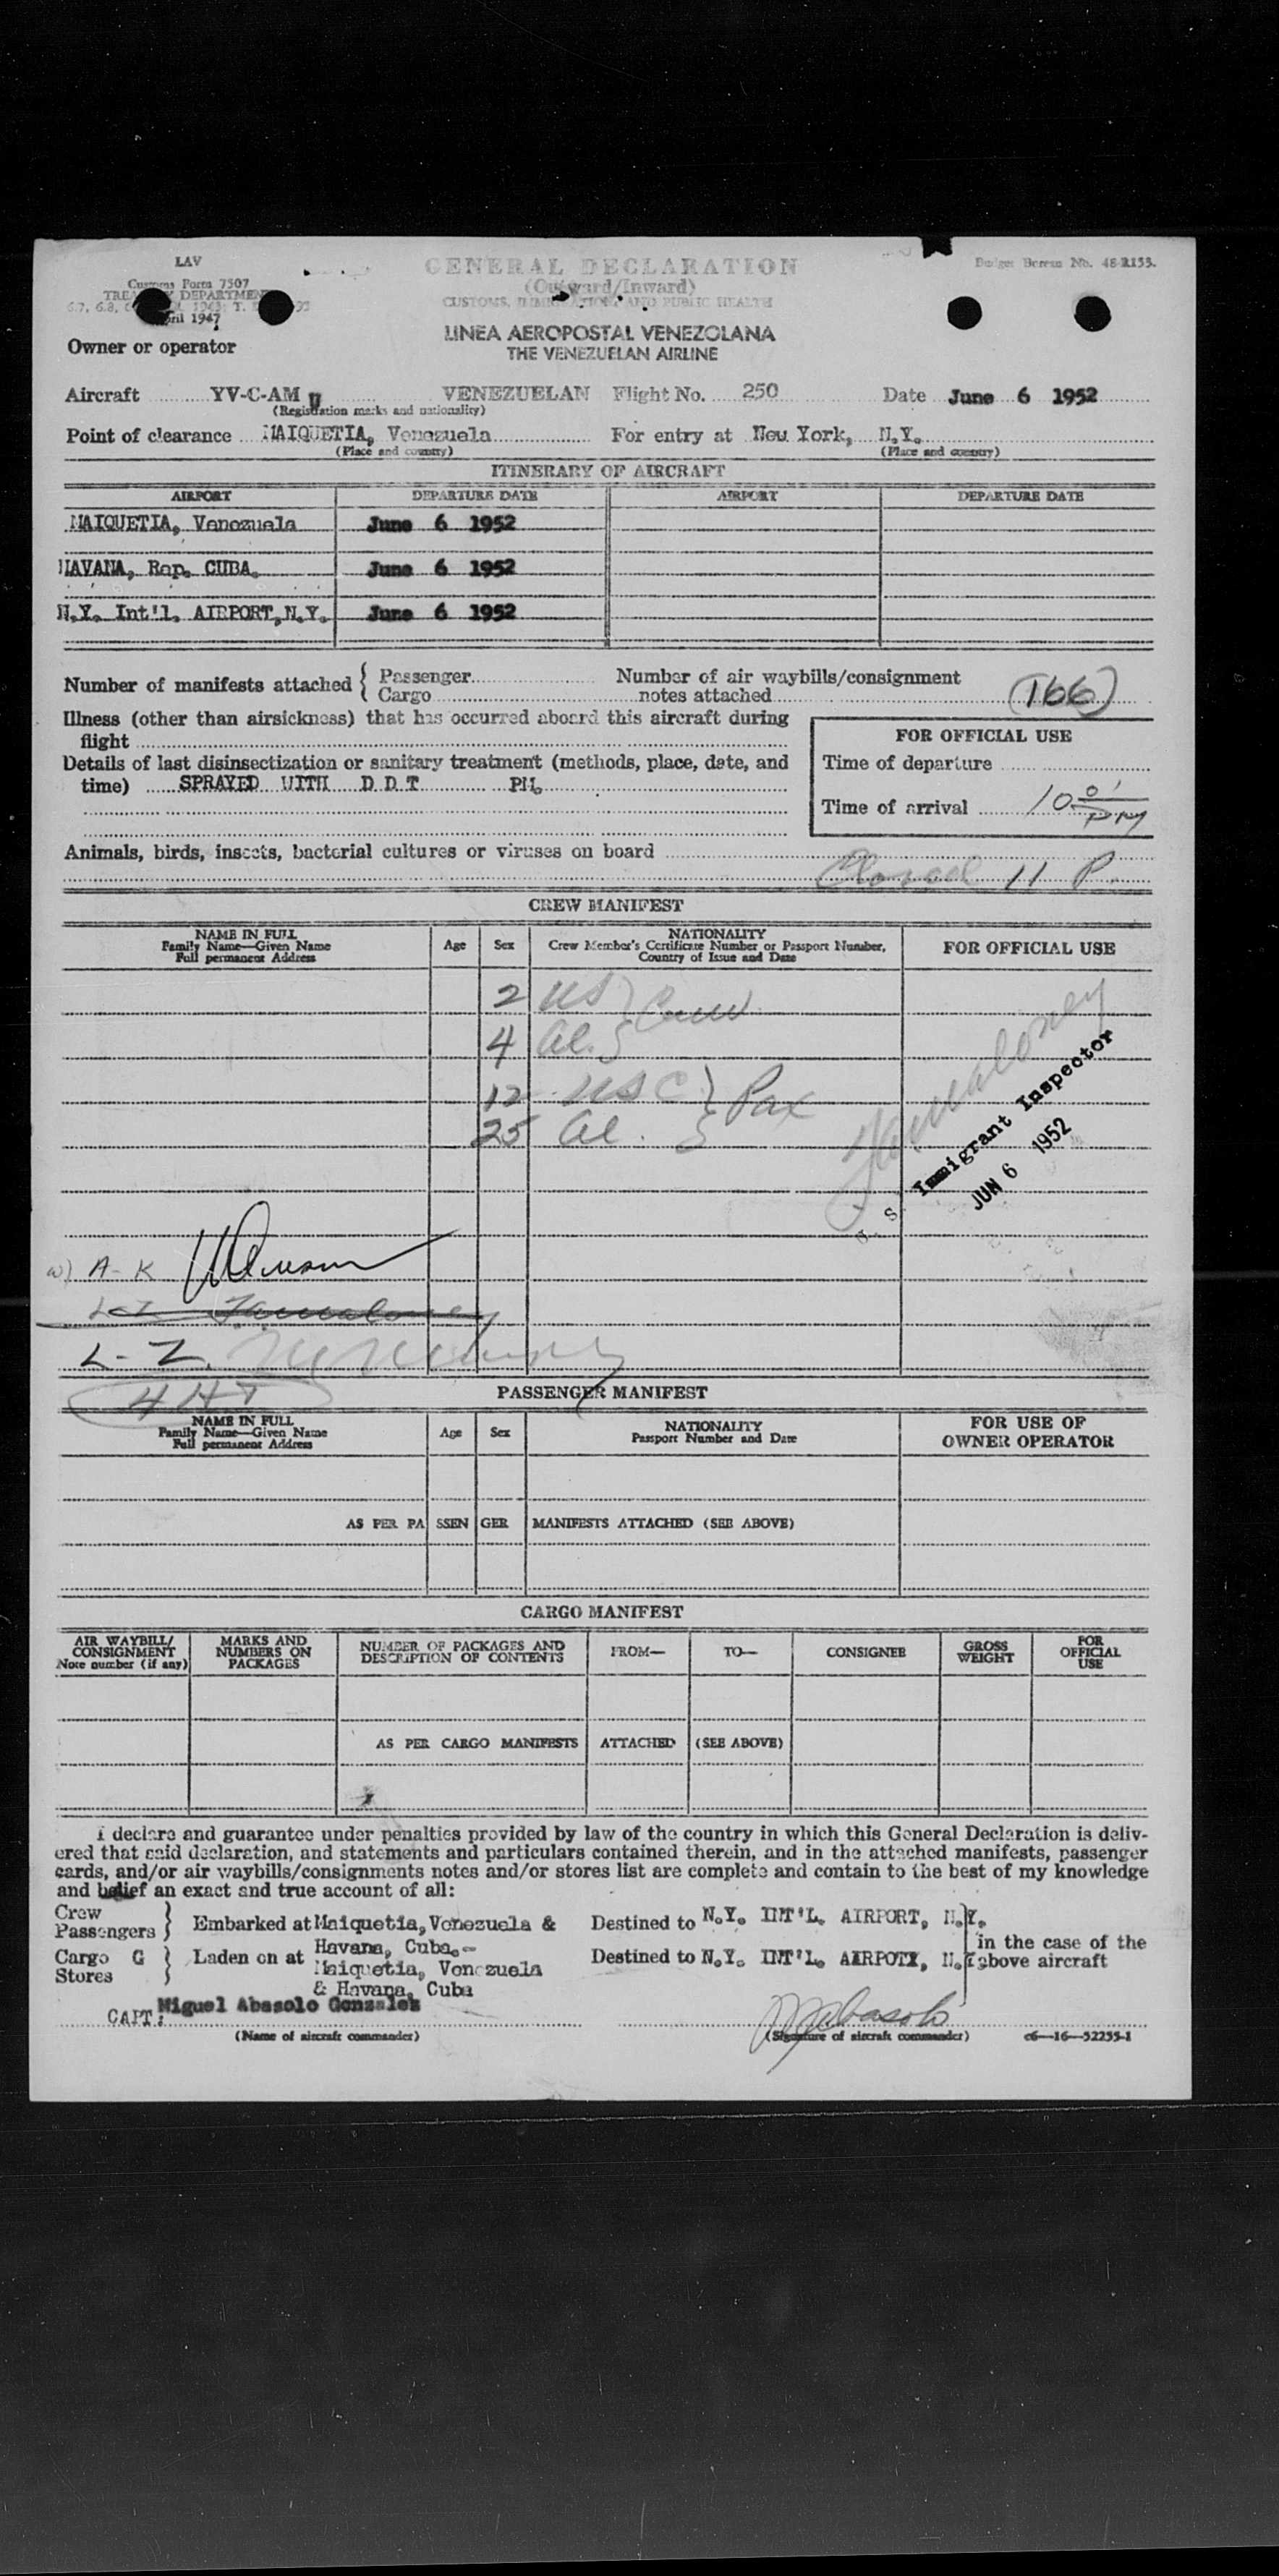 LAV
GENERAL DECLARATION
Budget Bureau No. 48-R155.
Customs Form 7507
(Outward/Inward)
TREASURY DEPARTMENT
CUSTOMS, IMMIGRATION, AND PUBLIC HEALTH
April 1947
LINEA AEROPOSTAL VENEZOLANA
Owner or operator
THE VENEZUELAN AIRLINE
Aircraft YV-C-AM U VENEZUELAN Flight No. 250 Date June 6 1952
(Registration marks and nationality)
Point of clearance MAIQUETIA, Venezuela For entry at New York, N.Y.
(Place and country) (Place and country)
ITINERARY OF AIRCRAFT
AIRPORT DEPARTURE DATE AIRPORT DEPARTURE DATE
MAIQUETIA, Venezuela June 6 1952
HAVANA, Rep. CUBA. June 6 1952
N.Y. Int'l. AIRPORT, N.Y. June 6 1952
Number of manifests attached { Passenger Number of air waybills/consignment
Cargo notes attached (166)
Illness (other than airsickness) that has occurred aboard this aircraft during
flight
FOR OFFICIAL USE
Details of last disinsectization or sanitary treatment (methods, place, date, and
Time of departure
time) SPRAYED WITH D D T PM.
Time of arrival 10 01 PM
Animals, birds, insects, bacterial cultures or viruses on board
11 P.
CREW MANIFEST
NAME IN FULL
Family Name—Given Name
Full permanent Address
Age Sex
NATIONALITY
Crew Member's Certificate Number or Passport Number,
Country of Issue and Date
FOR OFFICIAL USE
2 US } Crew
4 Al.
12 USC } Pax
25 Al.
U. S. Immigrant Inspector
JUN 6 1952
A-K
L-Z
L-Z.
4 HT
PASSENGER MANIFEST
NAME IN FULL
Family Name—Given Name
Full permanent Address
Age Sex
NATIONALITY
Passport Number and Date
FOR USE OF
OWNER OPERATOR
AS PER PASSENGER MANIFESTS ATTACHED (SEE ABOVE)
CARGO MANIFEST
AIR WAYBILL/
CONSIGNMENT
Note number (if any)
MARKS AND
NUMBERS ON
PACKAGES
NUMBER OF PACKAGES AND
DESCRIPTION OF CONTENTS
FROM— TO— CONSIGNEE
GROSS
WEIGHT
FOR
OFFICIAL
USE
AS PER CARGO MANIFESTS ATTACHED (SEE ABOVE)
I declare and guarantee under penalties provided by law of the country in which this General Declaration is deliv-
ered that said declaration, and statements and particulars contained therein, and in the attached manifests, passenger
cards, and/or air waybills/consignments notes and/or stores list are complete and contain to the best of my knowledge
and belief an exact and true account of all:
Crew
Passengers } Embarked at Maiquetia, Venezuela & Destined to N.Y. INT'L. AIRPORT, N.Y.
Havana, Cuba.-
in the case of the
Cargo G } Laden on at Maiquetia, Venezuela Destined to N.Y. INT'L. AIRPORT, N.Y. above aircraft
Stores
& Havana, Cuba
CAPT: Miguel Abasolo Gonzalez Mabasolo
(Name of aircraft commander) (Signature of aircraft commander) c6—16—52255-1